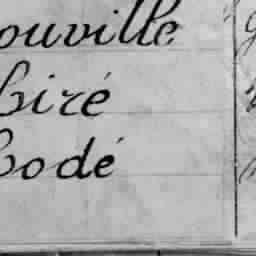 ouville
biré
bodé